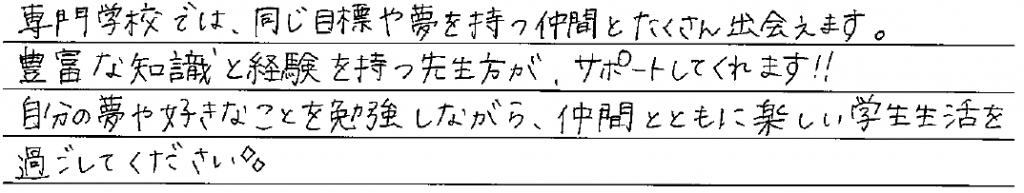 専門学校では、同じ目標や夢を持つ仲間とたくさん出会えます。
豊富な知識と経験を持つ先生方が、サポートしてくれます!!
自分の夢や好きなことを勉強しながら、仲間とともに楽しい学生生活を
過ごしてください